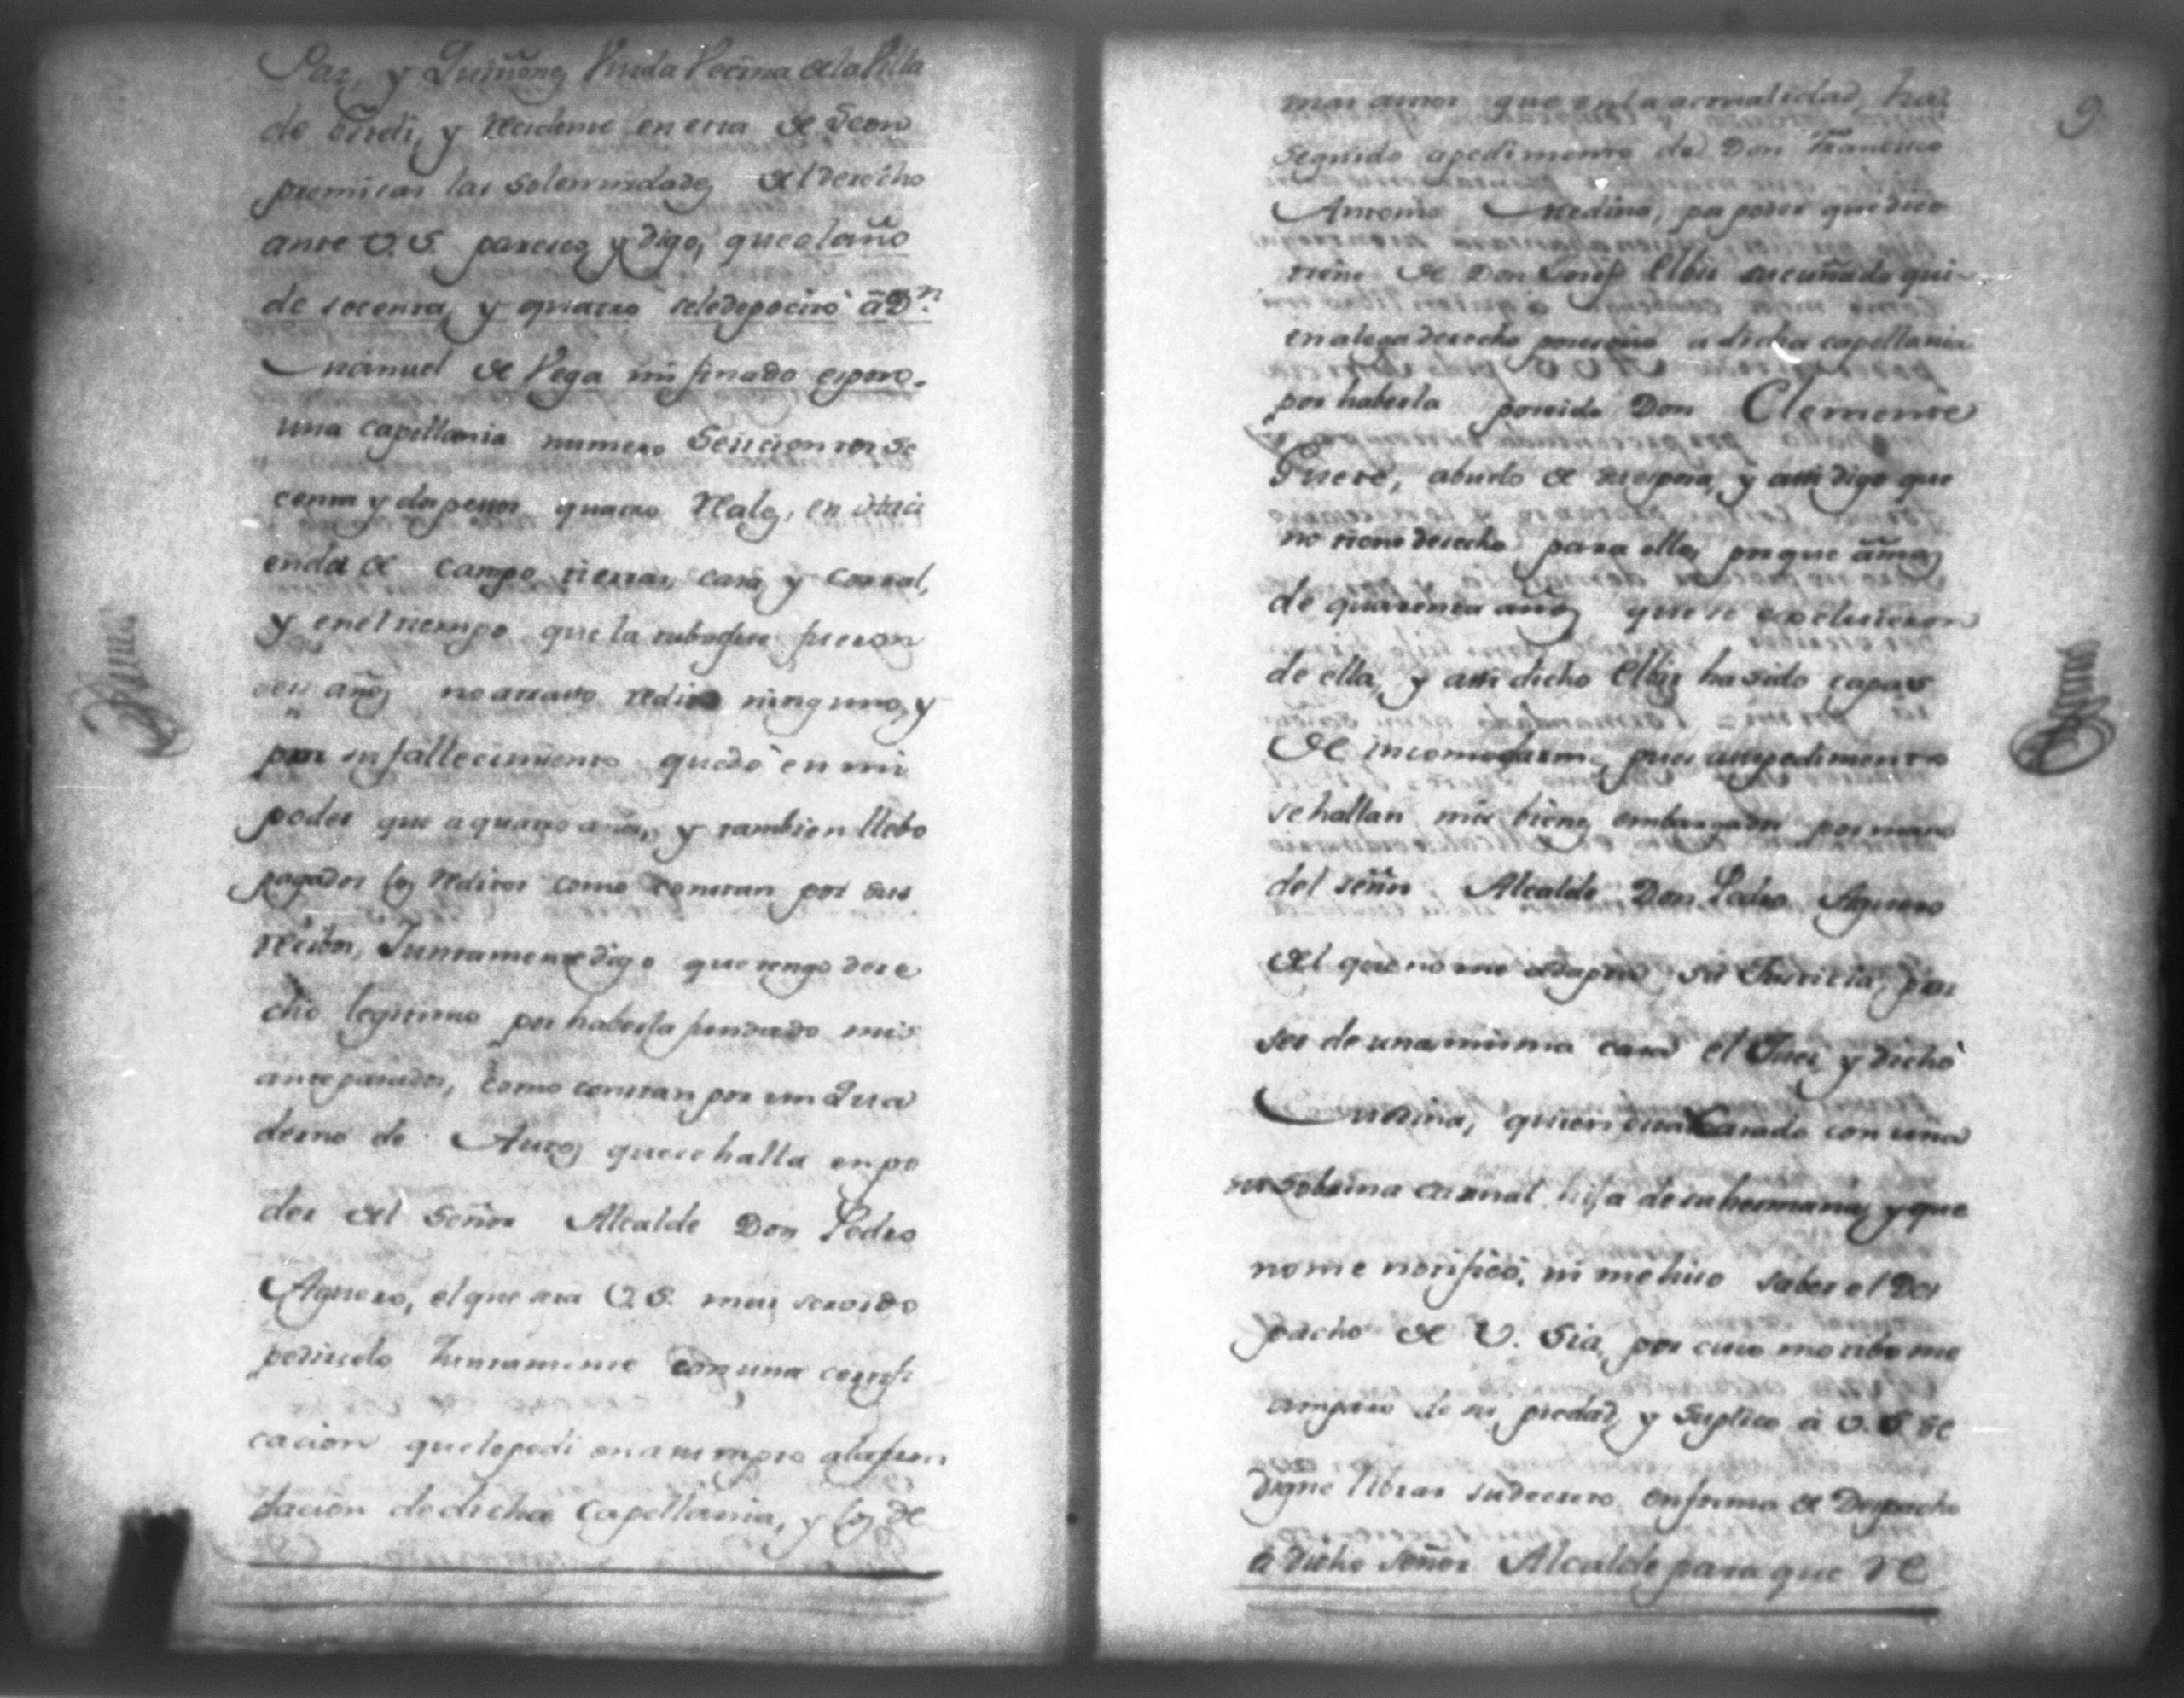 Paz, y Quiñones Viuda Vecina de la Villa
de Ometi, y recidente en esta de Leon
premisas las solemnidades del derecho
ante V.S. paresco, y digo, que el año
de secenta, y quatro sele depocitó à Dn.
Manuel de Vega mi finado esposo,
una capellania numero seiscientos se
centa y dos pesos quatro reales, en Haci
enda de campo tierras, casa, y corral,
y en el tiempo que la tubo que fueron
seis años no atraso redito ninguno, y
por su fallecimiento quedò en mi
poder que a quatro años, y tambien llebo
pagados los reditos como constan por sus
recibos, Juntamente digo que tengo dere
cho legitimo por haberla fundado mis
antepasados, como constan por un Qua
derno de Autos que se halla en po
der del Señor Alcalde Don Pedro
Aguero, el que sea V.S. muy servido
pedirselo Juntamente con una certifi
cacion que le pedi en un tiempo a la fun
dacion de dicha Capellania, y los de
9
mas autos que en la actualidad ha
seguido a pedimento de Don Francisco
Antonio Medina, por poder que dice
tiene de Don Josef Elbir su cuñado qui
en alega derecho a dicha capellania
por haberla poseido Don Clemente
abuelo de su esposa, y asi digo que
no tiene derecho para ella, porque à mas
de quarenta años que se excluieron
de ella, y asi dicho Elbir ha sido capas
de incomodarme, pues a su pedimento
se hallan mis bienes embargados por mano
del señor Alcalde Don Pedro Aguero
el que no me su Justicia, por
ser de una misma casa el Jues y dicho
Medina, quien està Casado con una
su sobrina carnal hija de su hermana, y que
no me notificò, ni me hiso saber el Des
pacho de V. Sia, por cuio motibo me
amparo de su piedad, y suplico à V.S. se
digne librar su decreto en forma de Despacho
à dicho señor Alcalde para que re